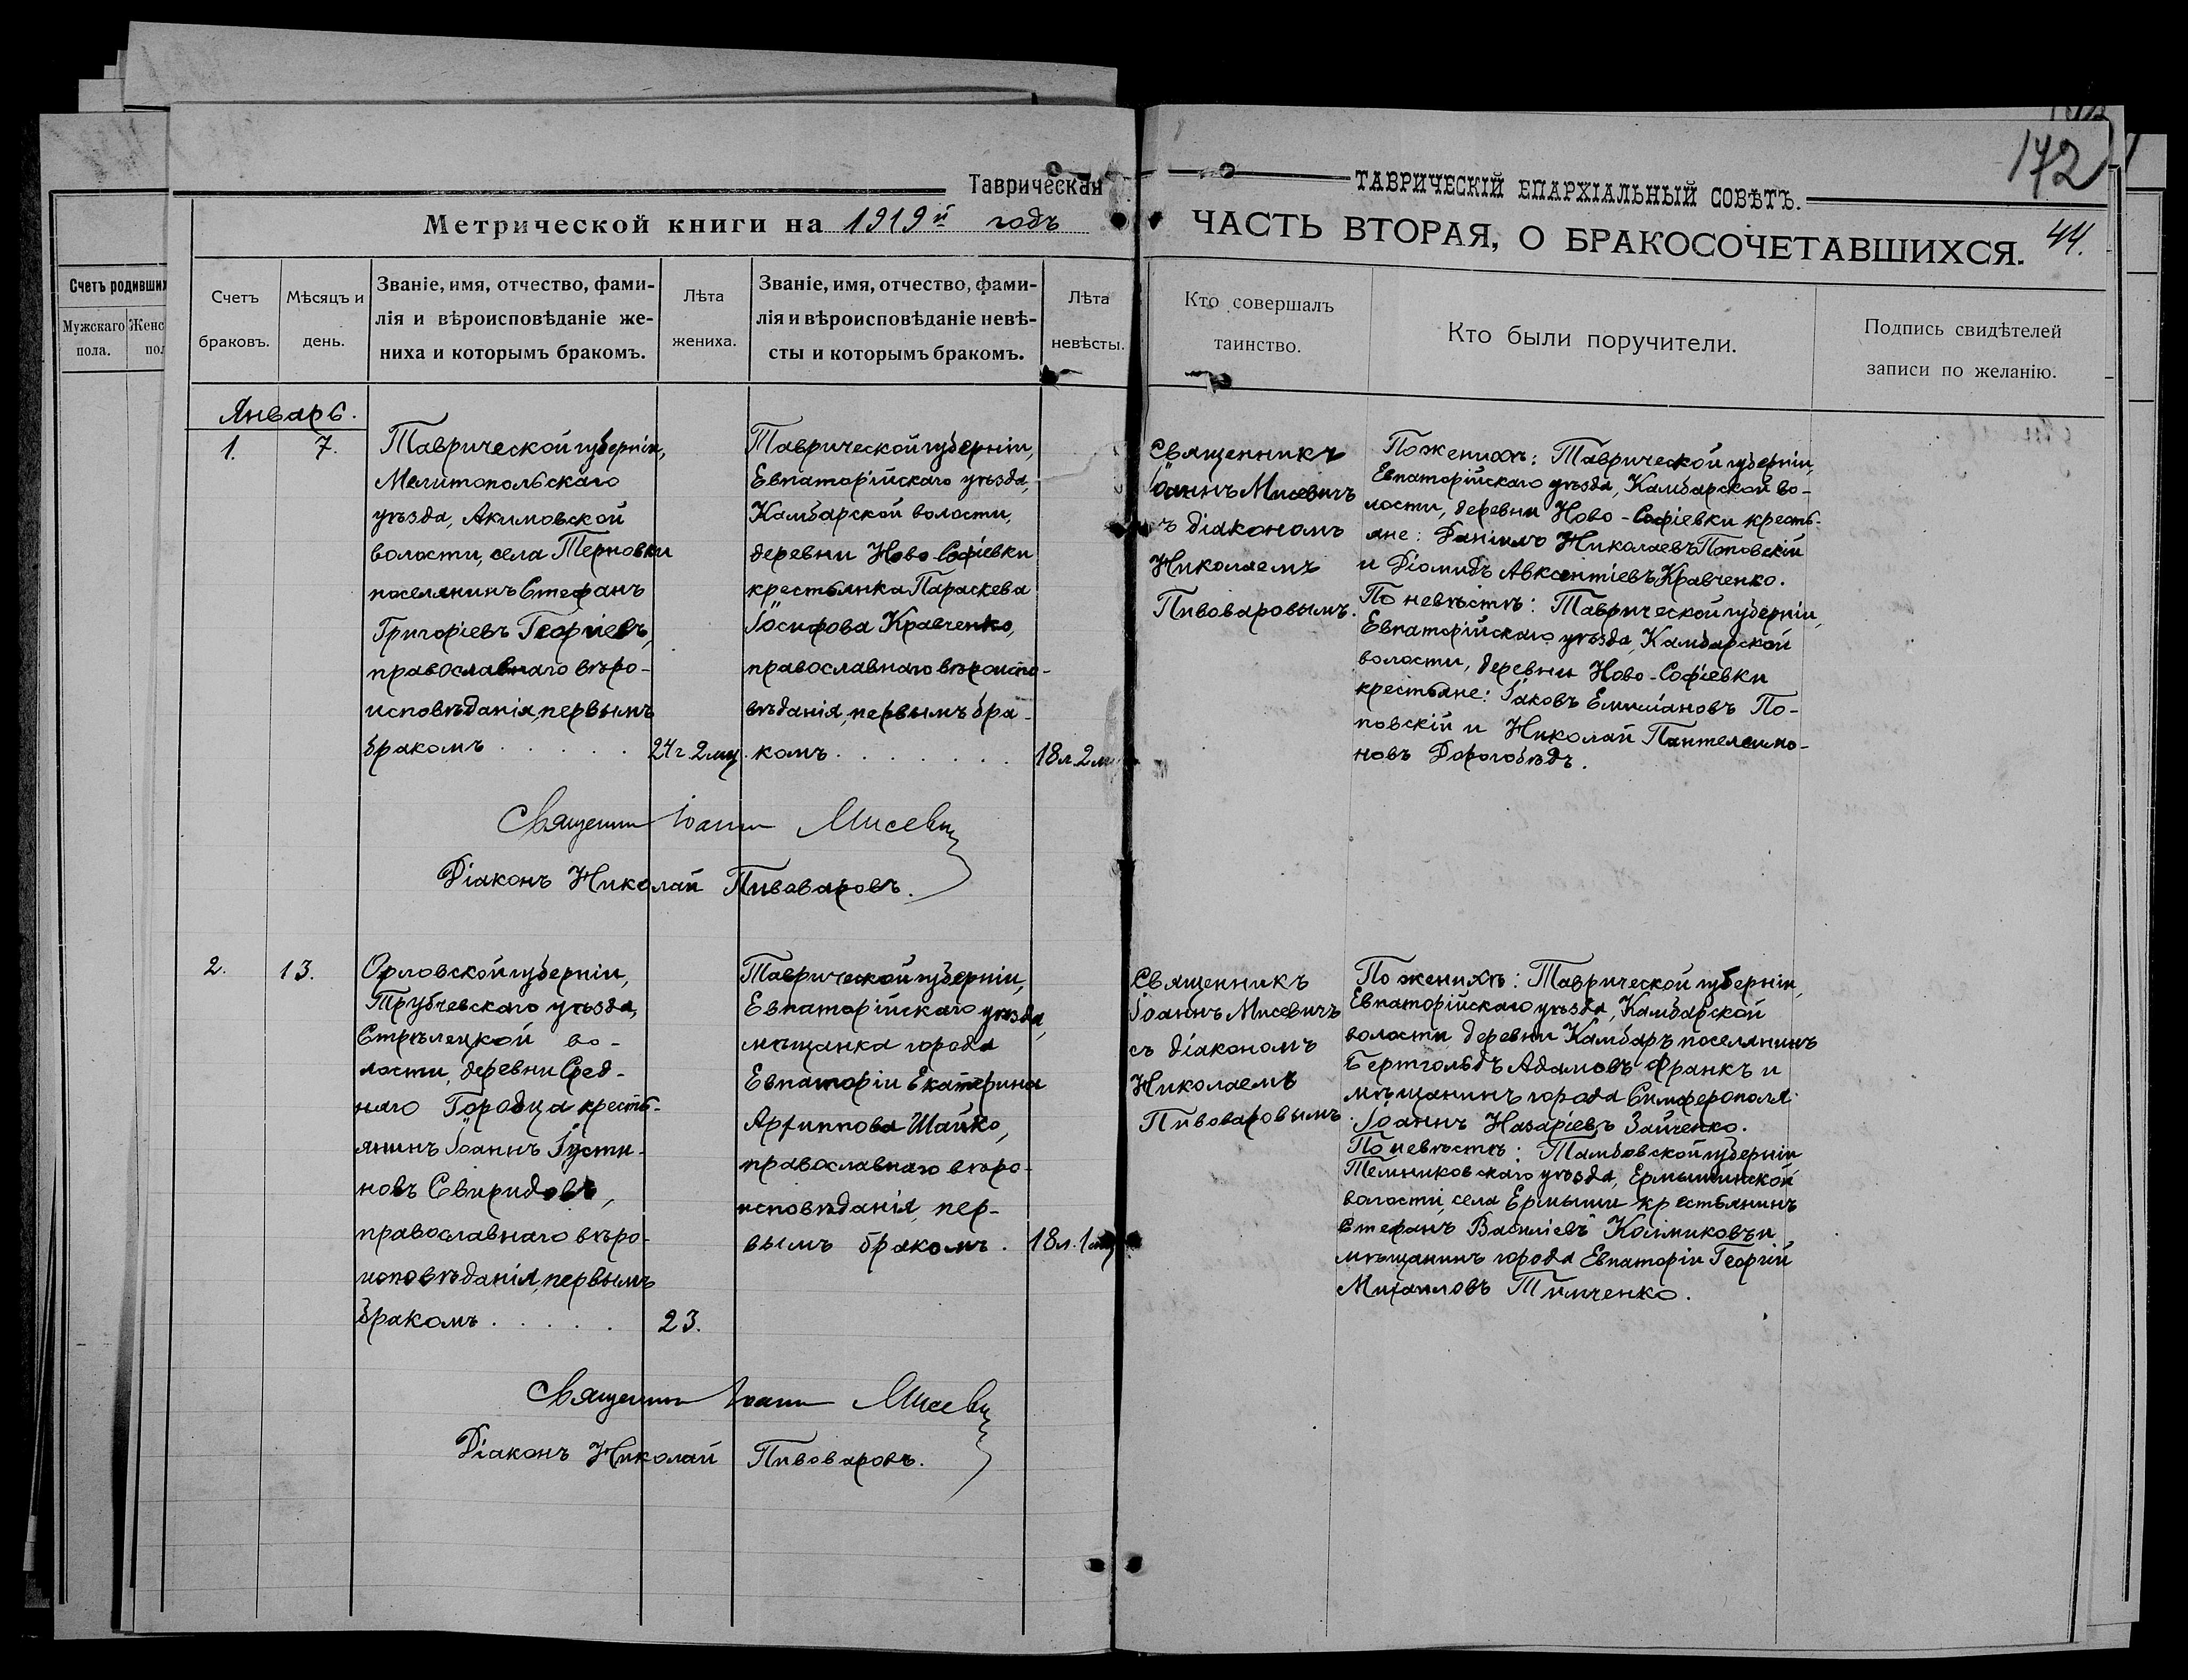 172
Таврическая
ТАВРИЧЕСКІЙ ЕПАРХІАЛЬНЫЙ СОВѢТЪ.
Метрической книги на 1919й годъ
ЧАСТЬ ВТОРАЯ, О БРАКОСОЧЕТАВШИХСЯ. 44.
Счетъ родивших
Мужскаго пола.
Женс
пол
Счетъ
браковъ.
Мѣсяцъ и
день.
Званіе, имя, отчество, фами-
лія и вѣроисповѣданіе же-
ниха и которымъ бракомъ.
Лѣта
жениха.
Званіе, имя, отчество, фами-
лія и вѣроисповѣданіе невѣ-
сты и которымъ бракомъ.
Лѣта
невѣсты.
Кто совершалъ
таинство.
Кто были поручители.
Подпись свидѣтелей
записи по желанію.
Январь.
1. 7.
Таврической губерніи,
Мелитопольскаго
уѣзда, Акимовской
волости, села Терновки
поселянинъ Стефанъ
Григоріевъ Георгіевъ,
православнаго вѣро-
исповѣданія, первымъ
бракомъ . . . . .
24 г. 2 мц.
Таврической губерніи,
Евпаторійскаго уѣзда,
Камбарской волости,
деревни Ново-Софіевки
крестьянка Параскева
Іосифова Кравченко,
православнаго вѣроиспо-
вѣданія, первымъ бра-
комъ . . . . . . .
18 л. 2 м
Священникъ
Іоаннъ Мисевичъ
съ діакономъ
Николаемъ
Пивоваровымъ.
По женихѣ: Таврической губерніи,
Евпаторійскаго уѣзда, Камбарской во-
лости, деревни Ново-Софіевки кресть-
яне: Даніилъ Николаевъ Поповскій
и Діомидъ Авксентіевъ Кравченко.
По невѣстѣ: Таврической губерніи,
Евпаторійскаго уѣзда, Камбарской
волости, деревни Ново-Софіевки
крестьяне: Іаковъ Емиліановъ По-
повскій и Николай Пантелеимо-
новъ Дорогобѣдъ.
Священник Іоанн Мисевич
Діаконъ Николай Пивоваровъ.
2. 13.
Орловской губерніи,
Трубчевскаго уѣзда,
Стрѣлецкой во-
лости, деревни Сред-
няго Городца кресть-
янинъ Іоаннъ Іусти-
новъ Свиридовъ,
православнаго вѣро-
исповѣданія, первымъ
бракомъ . . . . .
23.
Таврической губерніи,
Евпаторійскаго уѣзда,
мѣщанка города
Евпаторіи Екатерина
Архиппова Шайко,
православнаго вѣро-
исповѣданія, пер-
вымъ бракомъ.
18 л. 1 мц
Священникъ
Іоаннъ Мисевичъ
съ діакономъ
Николаемъ
Пивоваровымъ
По женихѣ: Таврической губерніи,
Евпаторійскаго уѣзда, Камбарской
волости, деревни Камбаръ поселянинъ
Бертгольдъ Адамовъ Франкъ и
мѣщанинъ города Симферополя
Іоаннъ Назаріевъ Зайченко.
По невѣстѣ: Тамбовской губерніи
Темниковскаго уѣзда, Ермишинской
волости, села Ермиши крестьянинъ
Стефанъ Василіевъ Колмиковъ и
мѣщанинъ города Евпаторіи Георгій
Михаиловъ Тимченко.
Священник Іоанн Мисевич
Діаконъ Николай Пивоваровъ.